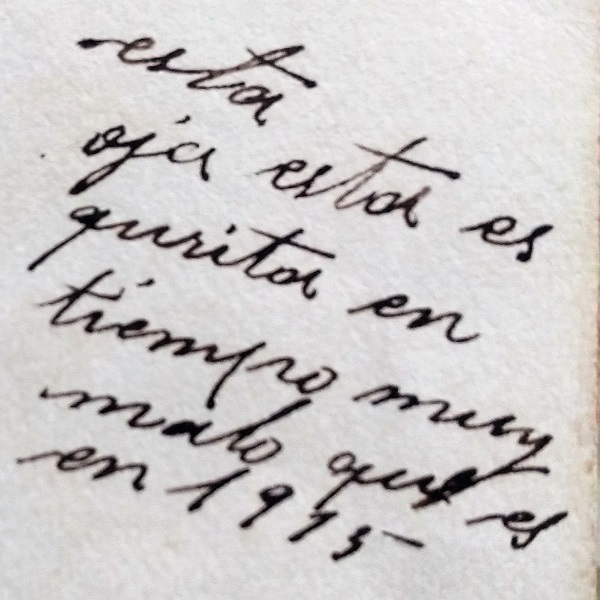 esta
oja esta es
qurita en
tiempo muy
malo que es
en 1915